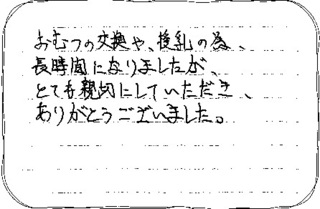 おむつの交換や、授乳の為、
長時間になりましたが、
とても親切にしていただき、
ありがとうございました。